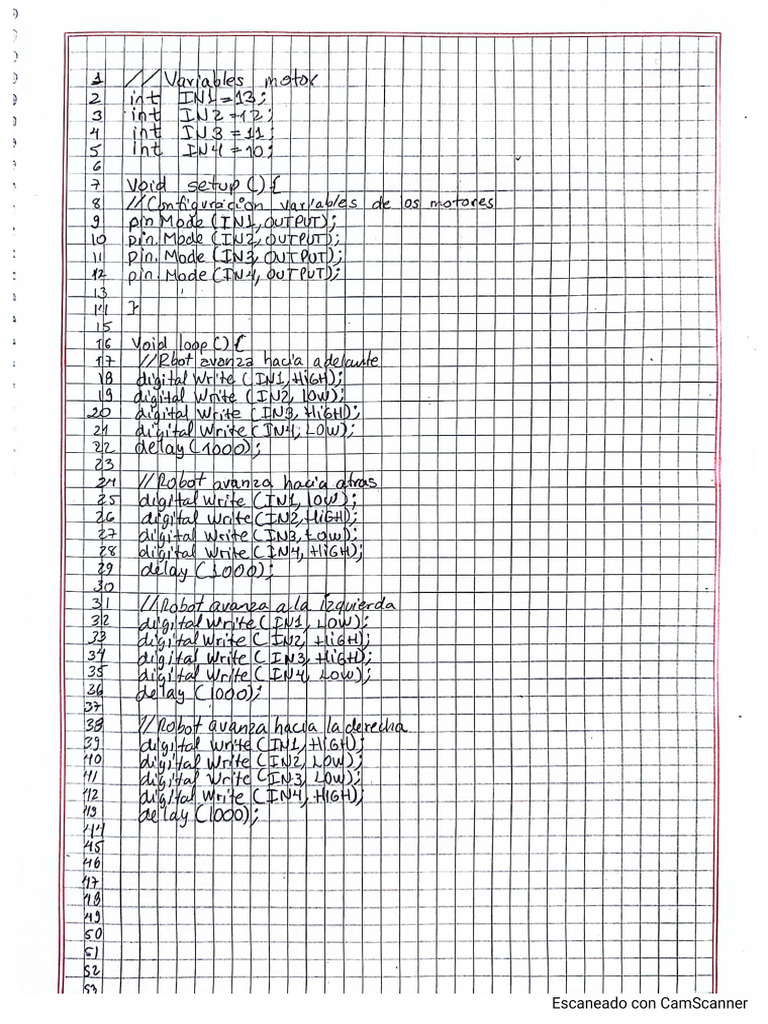 1 // Variables motor
2 int IN1=13;
3 int IN2=12;
4 int IN3=11;
5 int IN4=10;
6
7 Void setup(){
8 //Configuración variables de los motores
9 pin Mode (IN1,OUTPUT);
10 pin. Mode (IN2,OUTPUT);
11 pin. Mode (IN3,OUTPUT);
12 pin. Mode (IN4,OUTPUT);
13
14 }
15
16 Void loop(){
17 //Rbot avanza hacia adelante
18 digital Write (IN1,HiGH);
19 digital Write (IN2, LOW);
20 digital Write (IN3, HiGH);
21 digital Write (IN4, LOW);
22 delay(1000);
23
24 //Robot avanza hacia atras
25 digital Write (IN1, LOW);
26 digital Write (IN2,HiGH);
27 digital Write (IN3, LOW);
28 digital Write (IN4, HiGH);
29 delay (1000);
30
31 //Robot avanza a la Izquierda
32 digital Write (IN1, LOW);
33 digital Write (IN2, HiGH);
34 digital Write (IN3, HiGH);
35 digital Write (IN4, LOW);
36 delay (1000);
37
38 //Robot avanza hacia la derecha
39 digital Write (IN1, HiGH);
40 digital Write (IN2, LOW);
41 digital Write (IN3, LOW);
42 digital Write (IN4, HIGH);
43 delay (1000);
44
45
46
47
48
49
50
51
52
53
Escaneado con CamScanner